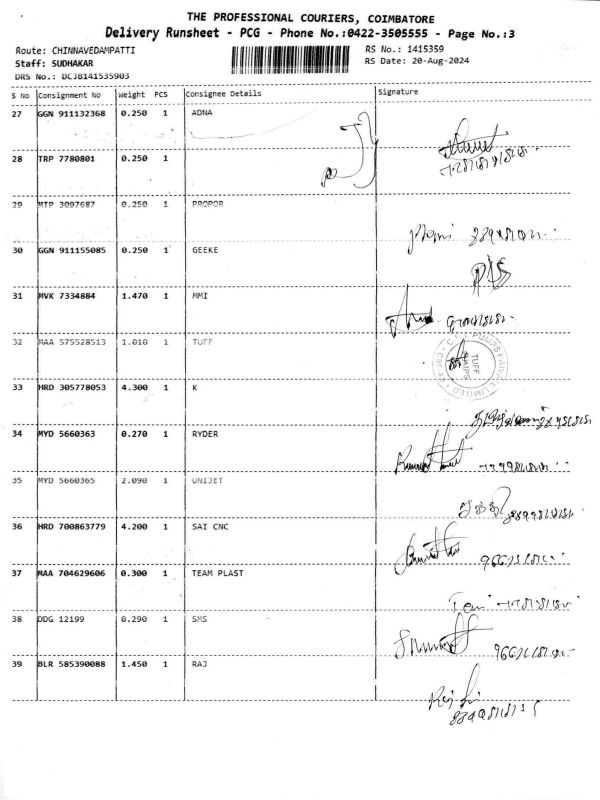 THE PROFESSIONAL COURIERS, COIMBATORE
Delivery Runsheet - PCG - Phone No.:0422-3505555 - Page No.:3
Route: CHINNAVEDAMPATTI RS No.: 1415359
Staff: SUDHAKAR RS Date: 20-Aug-2024
DRS No.: DCJB141535903
S No Consignment No Weight PCS Consignee Details Signature
27 GGN 911132368 0.250 1 ADNA
28 TRP 7780801 0.250 1
29 MTP 3097687 0.250 1 PROPOR
30 GGN 911155085 0.250 1 GEEKE
31 MVK 7334884 1.470 1 MMI
32 MAA 575528513 1.010 1 TUFF
TUFF
CHIPS
33 HRD 305778053 4.300 1 K
34 MYD 5660363 0.270 1 RYDER
35 MYD 5660365 2.090 1 UNIJET
36 HRD 700863779 4.200 1 SAI CNC
37 MAA 704629606 0.300 1 TEAM PLAST
38 DDG 12199 0.290 1 SMS
39 BLR 585390088 1.450 1 RAJ